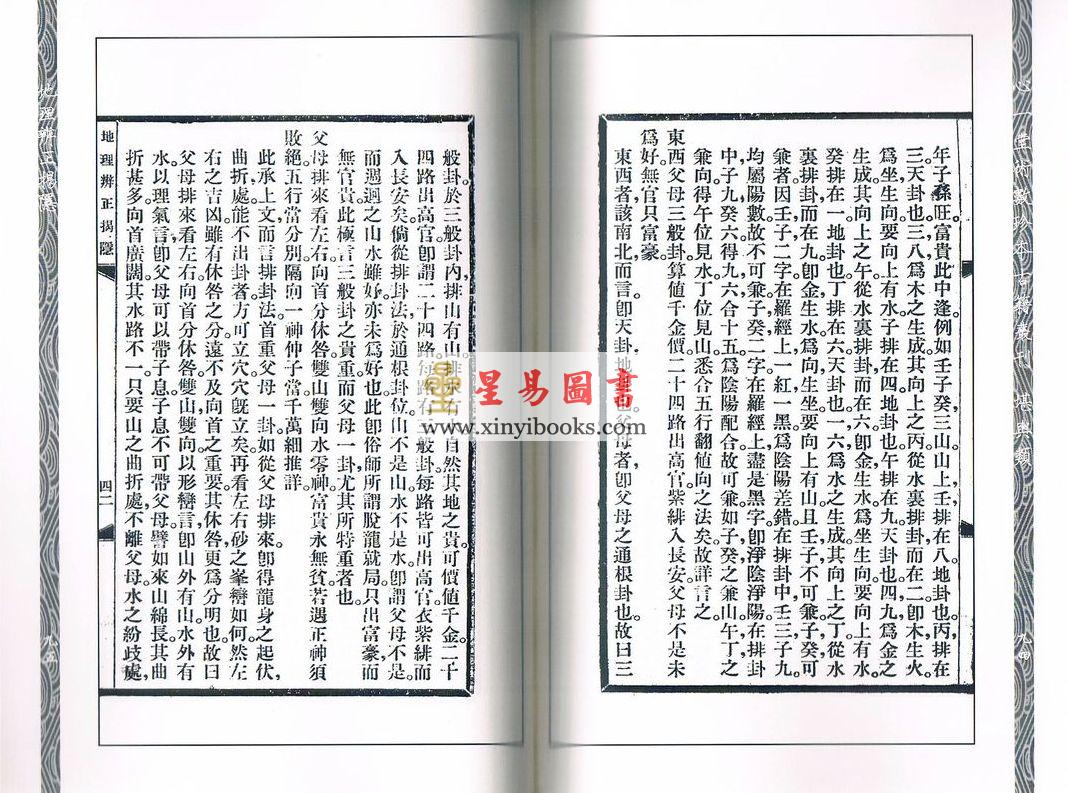 年子孫旺。富貴此中逢。例如壬子癸三山。山上壬。排在八。地卦也。丙。排在
三。天卦也。三八爲木之生成。其向上之丙。從水裏排卦。而在二。卽木生火。
爲坐生向。要向上有水。子排在四。地卦也。午排在九。天卦也。四九爲金之
生成。其向上之午。從水裏排卦。而在六。卽金生水。爲坐生向。要向上有水。
癸排在一。地卦也。丁排在六。天卦也。一六爲水之生成。其向上之丁。從水
裏排卦。而在九。卽金生水。爲向生坐。要向上有山。且壬子不可兼。子癸可
兼者。因壬子二字。在羅經上。一紅一黑。爲陰陽差錯。在排卦中。壬三子九。
均屬陽數。故不可兼。子癸二字。在羅經上。盡是黑字。卽淨陰淨陽。在排卦
中。子九癸六。得九六合十五。爲陰陽配合。故可兼。如子癸之兼山。午丁之
兼向。得午位見水。丁位見山。悉合五行翻値向之法矣。故詳言之
東西父母三般卦。算値千金價。二十四路出高官。紫緋入長安。父母不是未
爲好。無官只富豪
東西者。該南北而言。卽天卦地卦也。父母者。卽父母之通根卦也。故曰三
般卦。於三般卦內。排山有山。排水有水。自然其地之貴。可價値千金。二十
四路出高官。卽謂二十四路。每路有三般卦。每路皆可出高官。衣紫緋。而
入長安矣。倘從排卦法。於通根卦位。山不是山。水不是水。卽謂父母不是。
而週迴之山水雖好。亦未爲好也。此卽俗師所謂脫龍就局。只出富豪。而
無官貴。此極言三般卦之貴重。而父母一卦。尤其所特重者也。
父母排來看左右。向首分休咎。雙山雙向水零神。富貴永無貧。若遇正神須
敗絕。五行當分別。隔向一神仲子當。千萬細推詳。
此承上文而言。排卦法。首重父母一卦。如從父母排來。卽得龍身之起伏,
曲折處。能不出卦者。方可立穴。穴旣立矣。再看左右砂之峯巒如何。然左
右之吉凶。雖有休咎之分。遠不及向首之重要。其休咎更爲分明也。故曰
父母排來看左右。向首分休咎。雙山雙向。以形巒言。卽山外有山。水外有
水。以理氣言。卽父母可以帶子息。子息不可帶父母。譬如來山綿長。其曲
折甚多。向首廣闊。其水路不一。只要山之曲折處。不離父母。水之紛歧處,
地理辨正揭隱
四二
九四
九五
星易圖書
www.xinyibooks.com